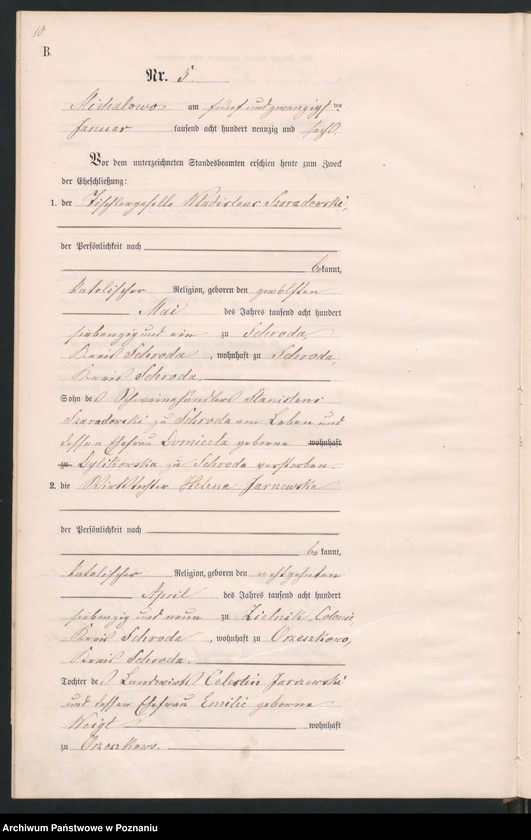 10
B.
Nr. 5
Michalowo am fünf und zwanzigsten
Januar tausend acht hundert neunzig und sechs.
Vor dem unterzeichneten Standesbeamten erschien heute zum Zweck
der Eheschließung:
1. der Tischlergeselle Wladislaus Szaradowski,
der Persönlichkeit nach
bekannt,
katolischer Religion, geboren den zwölften
Mai des Jahres tausend acht hundert
siebenzig und ein zu Schroda,
Kreis Schroda, wohnhaft zu Schroda,
Kreis Schroda.
Sohn des Schweinehändlers Stanislaus
Szaradowski zu Schroda am Leben und
dessen Ehefrau Domicela geborne wohnhaft
zu Dylikowska zu Schroda verstorben.
2. die Wirtstochter Helena Jarzewska
der Persönlichkeit nach
bekannt,
katolischer Religion, geboren den achtzehnten
April des Jahres tausend acht hundert
siebenzig und neun zu Zielnik Colonie,
Kreis Schroda, wohnhaft zu Orzeszkowo,
Kreis Schroda.
Tochter des Landwirth Celestin Jarzewski
und dessen Ehefrau Emilie geborne
Weigt wohnhaft
zu Orzeszkowo.
Archiwum Państwowe w Poznaniu